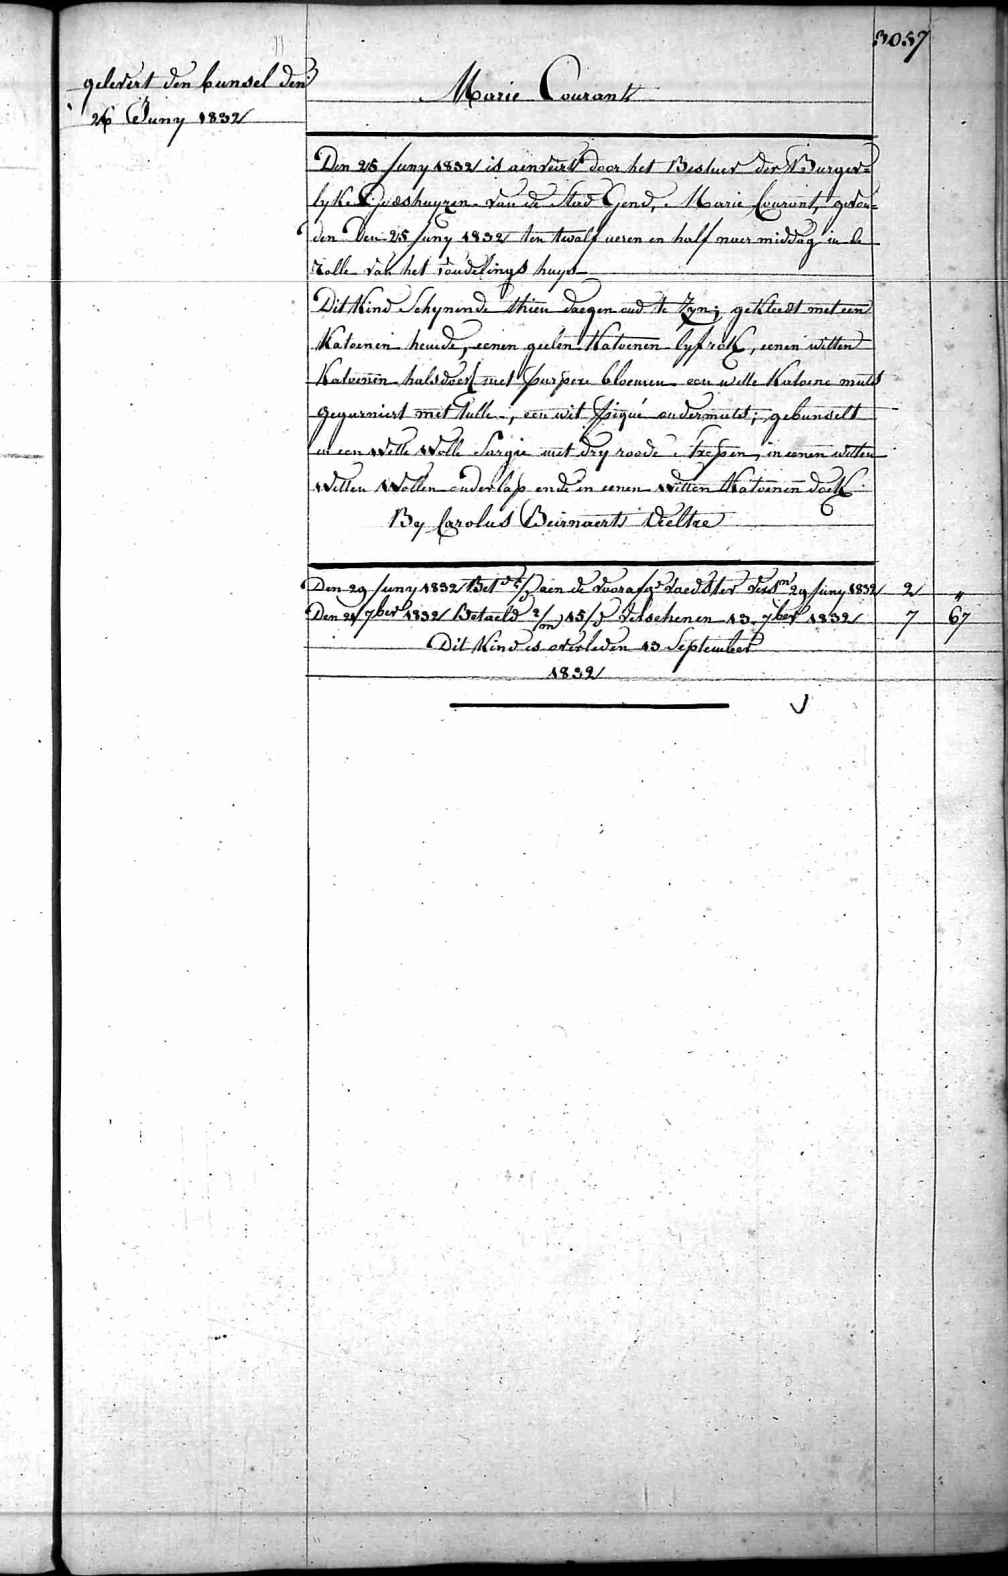 3057
gelevert den bunsel den
26 Juny 1832
Marie Courant
Den 25 Juny 1832 is aenveirt door het Bestuer der Burger=
lyke Godshuyzen van de Stad Gend, Marie Courant, gevon=
den den 25 Juny 1832 ten twalf ueren en half naer middag in de
Rolle van het vondelings huys
Dit Kind Schynende thien daegen oud te Zyn; gekleedt met een
Katoenen hemde, eenen geelen Katoenen lyfrok, eenen witten
Katoenen halsdoek met purpere bloemen een witte Katoene muts
gegarniert met tulle, een wit piqué ondermuts; gebunselt
in een witte Wolle Sargie met dry roode Strepen, in eenen witten
Witten Wollen onderlap ende in eenen Witten Katoenen doek
By Carolus Beirnaerts Deltre
Den 29 Juny 1832 Bet aen de voorafg Voedster 29 Juny 1832 2 "
Den 21 7ber 1832 Betaeld 2/m 15/d Verschenen 13 7ber 1832 7 67
Dit Kind is overleden 13 September
1832